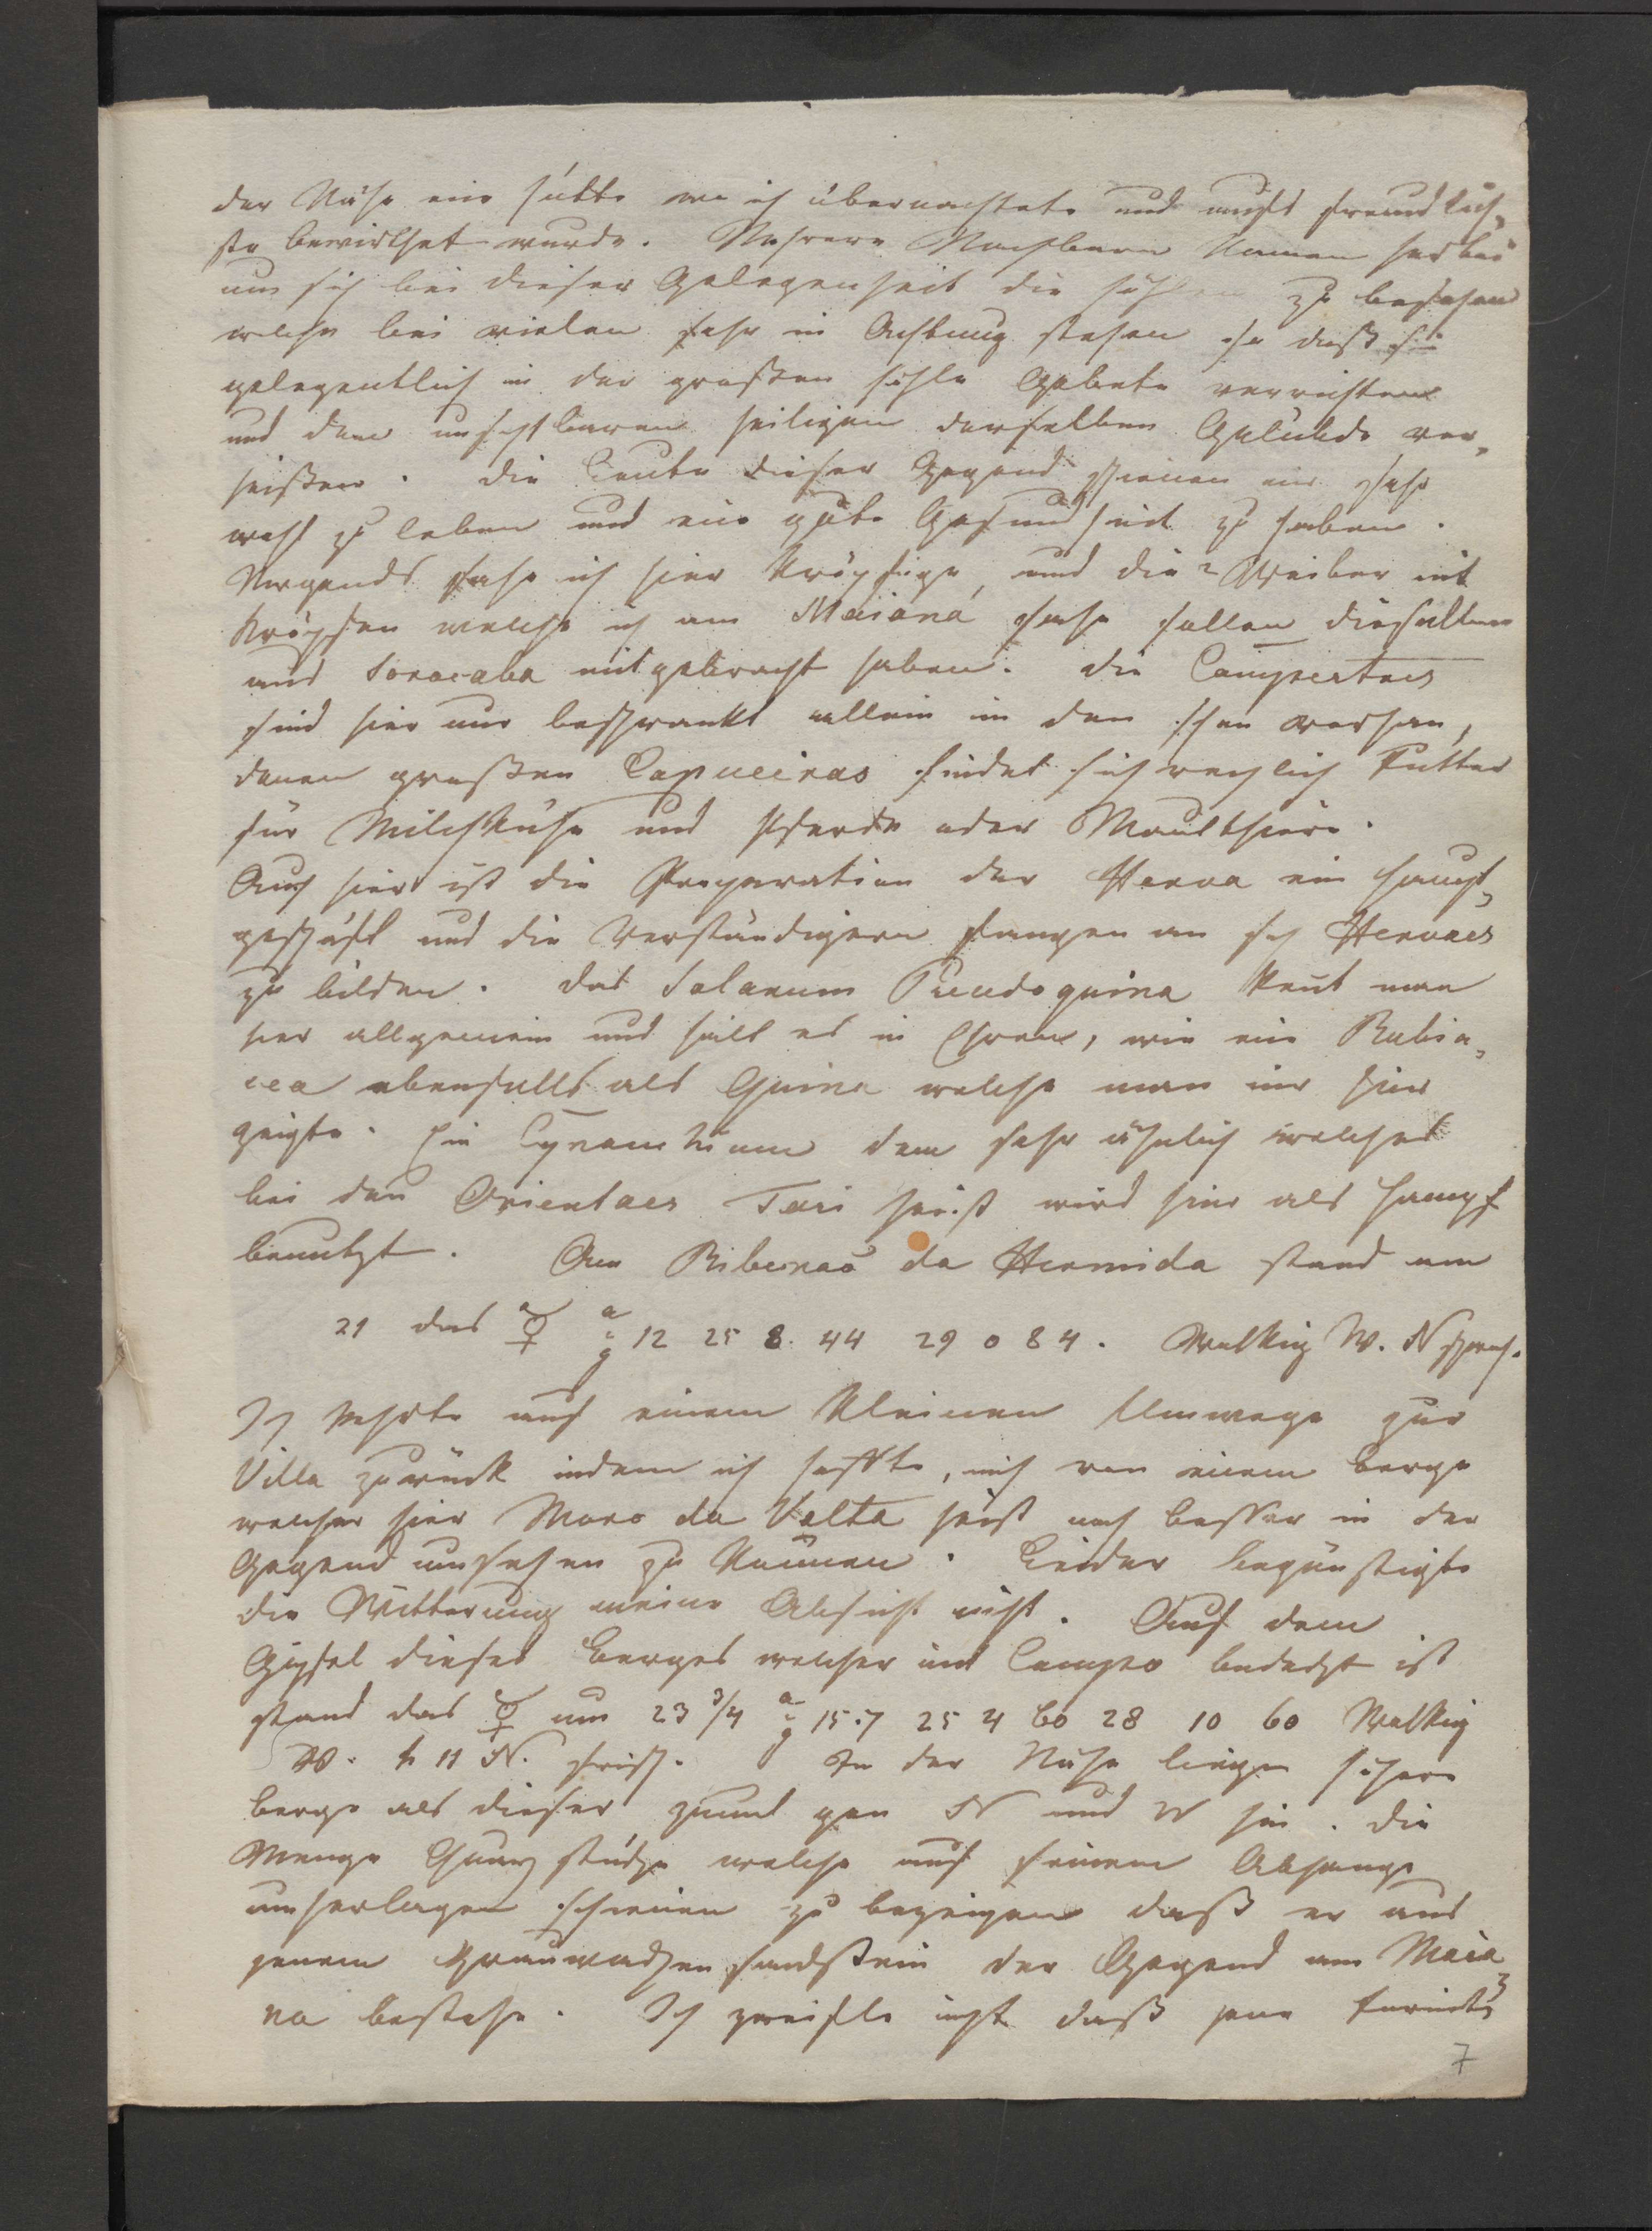 der Nähe eine Hütte wo ich übernachtete und aufs freundlich-
ste bewirthet wurde. Mehrere Nachbarn kamen herbei
um sich bei dieser Gelegenheit die Höhlen zu besehen
welche bei vielen sehr in Achtung stehen so daß sie
gelegentlich in der großen Höhle Gebete verrichten
und dem unsichtbaren Heiligen derselben Gelübde ver-
heißen. Die Leute dieser Gegend schienen mir sehr
wohl zu leben und eine gute Gesundheit zu haben.
Nirgends sahe ich hier Kröpfige, und die 2 Weiber mit
Kröpfen welche ich am Maiana sahe sollen dieselben
aus Sorocaba mitgebracht haben. Die Campestres
sind hier nur beschrankt allein in den schon vorhan,
denen großen Capueiras findet sich reichlich Futter
für Milchkühe und Pferde oder Maulthiere.
Auch hier ist die Preparation der Herva ein Haupt,
geschäft und die Verständigern fangen an sich Hervaes
zu bilden. Das Solanum Pseudoquina kent man
hier allgemein und hält es in Ehren, wie eine Rubia,
cea ebenfalls als Quina welche man mir hier
zeigte. Ein Cynanchum dem sehr ähnlich welches
bei den Orientaes Tasi heist wird hier als Hanpf
benutzt. Am Ribeirao da Hermida stand um
21 das ☿ 12 25 8. 44 29 0 84. Wolkig W. N schwach.
Ich kehrte auf einem kleinen Umwege zur
Villa zurück indem ich hoffte, mich von einem Berge
welcher hier Moro da Volta heist noch besser in der
Gegend umsehen zu können. Leider begünstigte
die Witterung meine Absicht nicht. Auf dem
Gipfel dieses Berges welcher mit Campo bedeckt ist
stand das ☿ um 23 3/4 15.7 25 4 60 28 10 60 Wolkig
W. h 11 N. frisch. In der Nähe liegen höhere
Berge als dieser zumal gen N und W hin. Die
Menge Quarzstücke welche auf seinem Abhange
umherlagen schienen zu bezeigen daß er aus
jenem Grauwackensandstein der Gegend am Maia,
na bestehe. Ich zweifle nicht daß jene
7